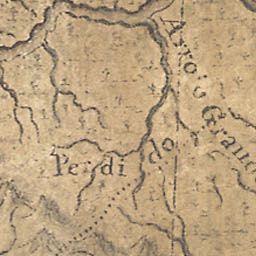 Arroio Grande
Perdido